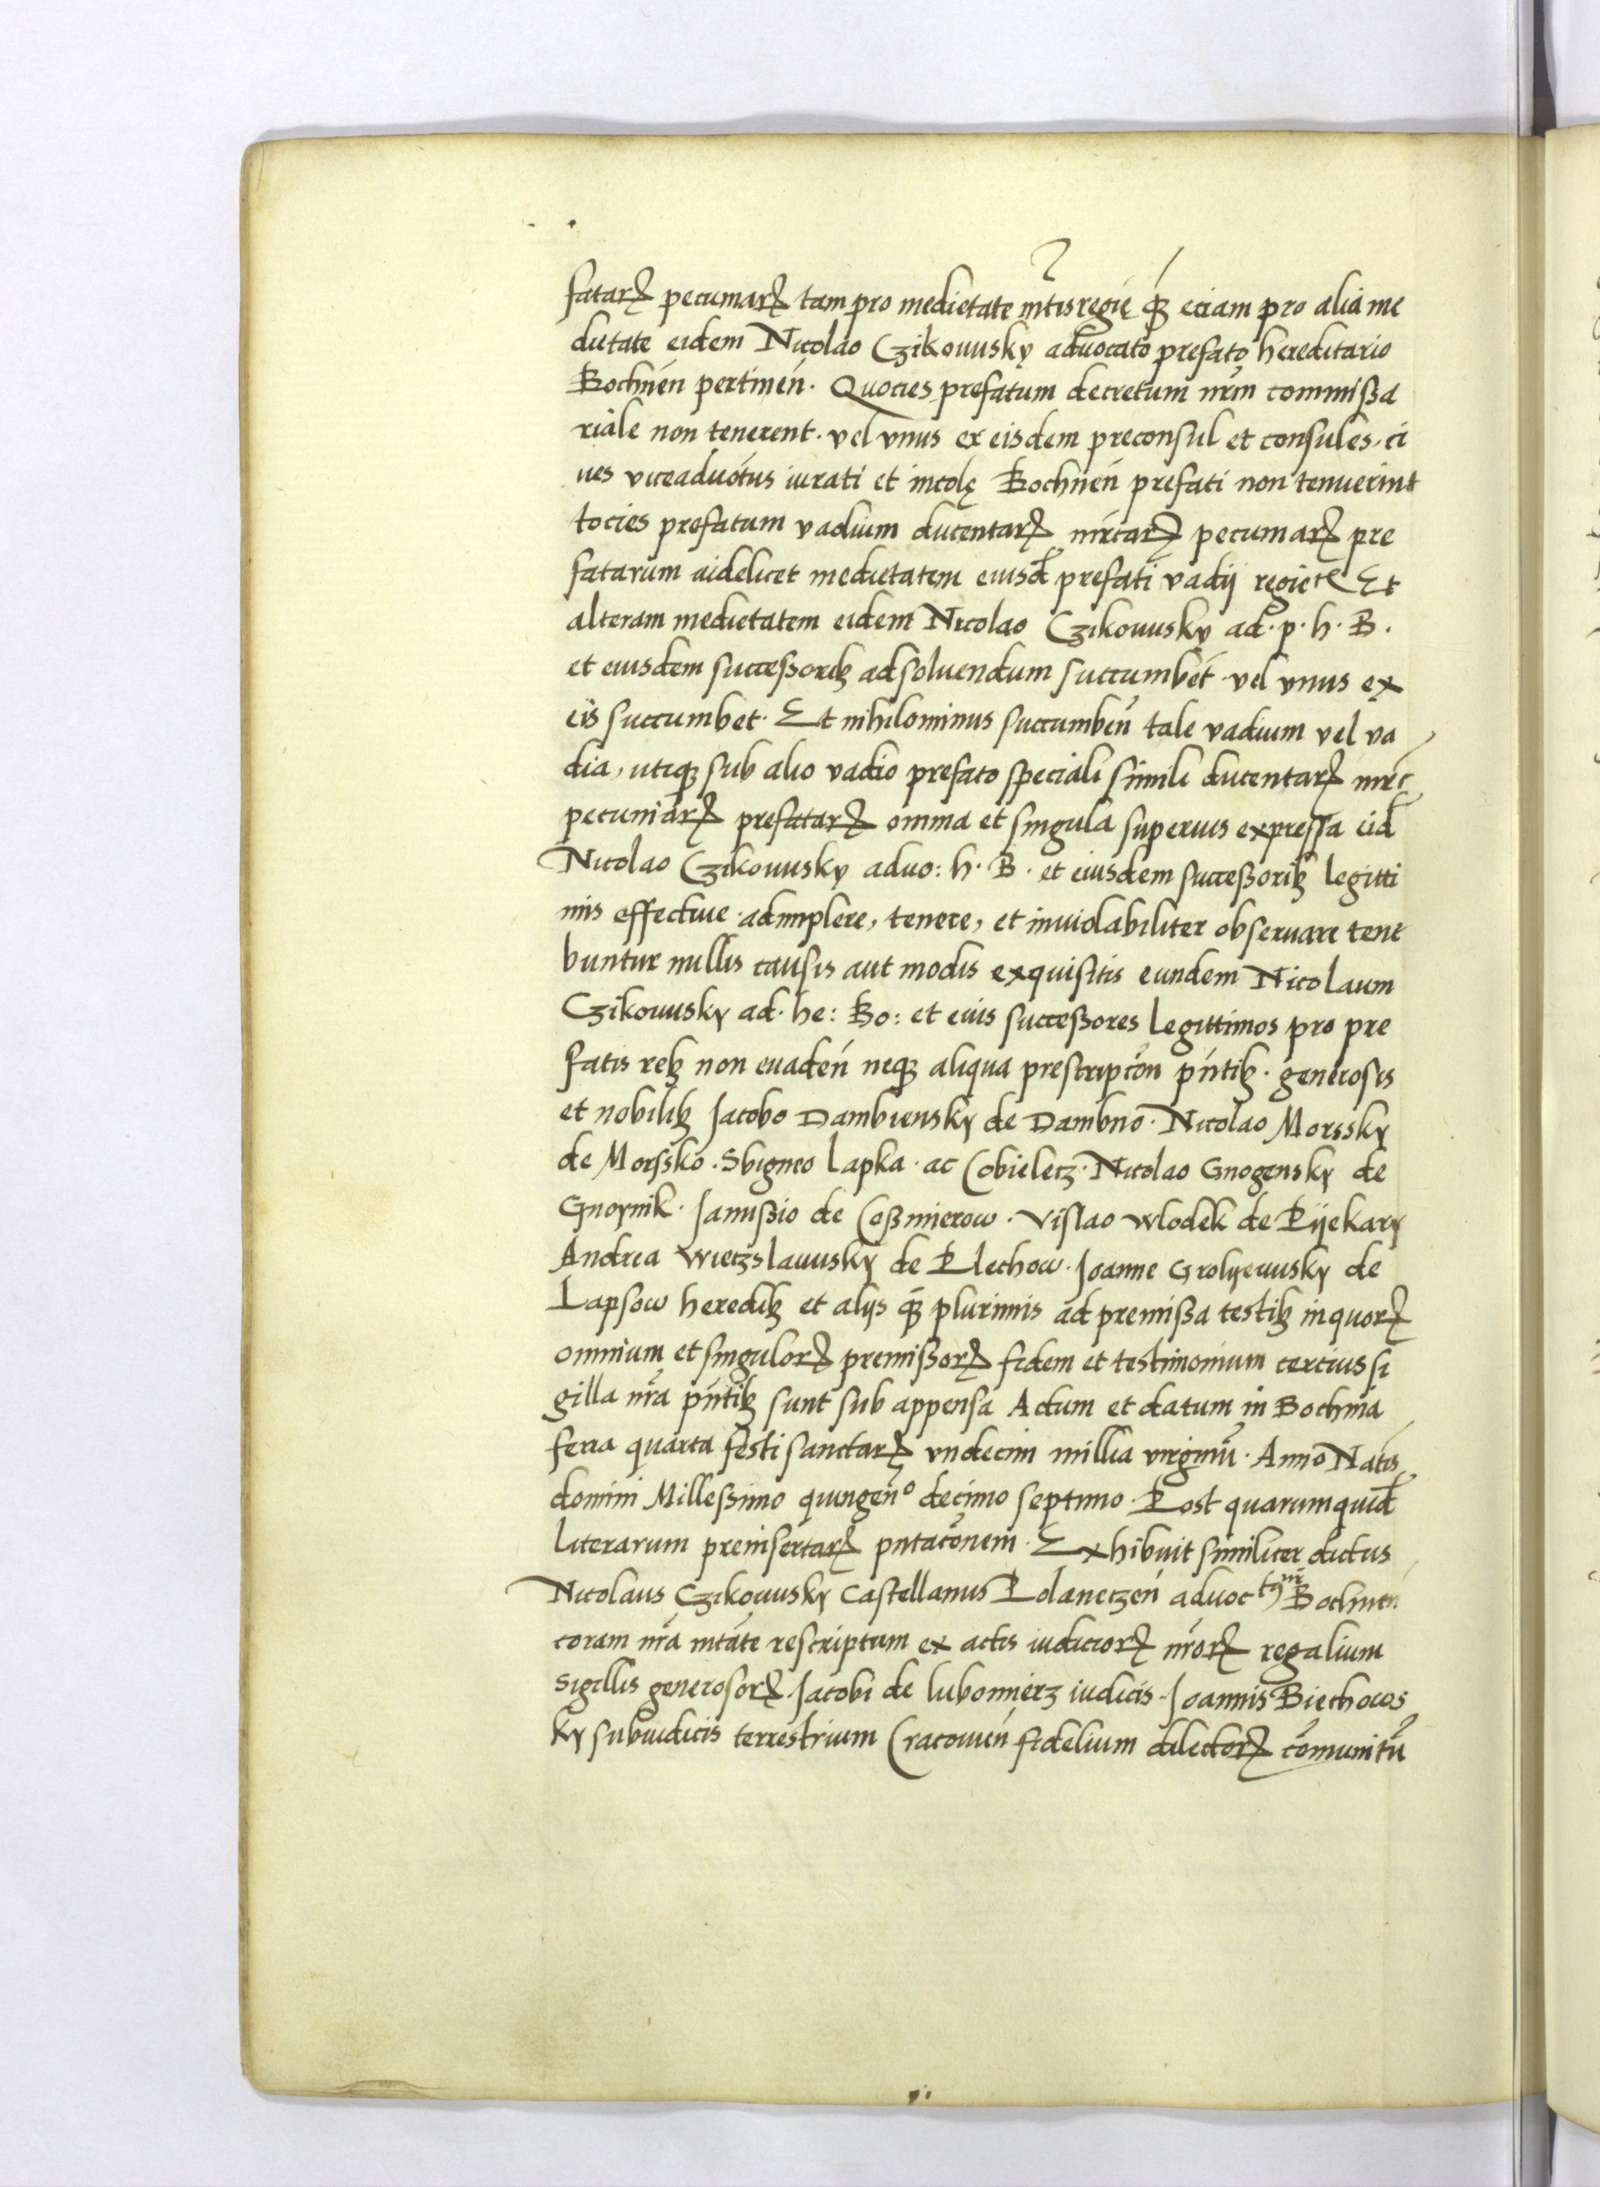 fatarꝝ pecuniarꝝ tam pro medietate mtis regię qꝫ eciam pro alia me
dietate eidem Nicolao Czikowsky advocato prefato hereditario
Bochnen pertinen. Quocies prefatum decretum nrm commissa
riale non tenerent. vel vnus ex eisdem preconsul et consules. ci
ues viceadvotus iurati et incolę Bochnen prefati non tenuerint
tocies prefatum vadium ducentarꝝ mrcarꝝ pecuniarꝝ pre
fatarum videlicet medietatem eiusd prefati vadij regie Et
alteram medietatem eidem Nicolao Czikowsky ad. p. h. B.
et eiusdem successoribꝫ ad soluendum succumbet. vel vnus ex
eis succumbet. Et nihilominus succumben tale vadium vel va
dia, utiqꝫ sub alio vadio prefato speciali simili ducentarꝝ mrc
pecuniarꝝ prefatarꝝ omnia et singula superius expressa eid
Nicolao Czikowsky advo: h. B. et eiusdem successoribꝫ legitti
mis effectiue. adimplere, tenere, et inuiolabiliter obseruare tene
buntur nullis causis aut modis exquisitis eundem Nicolaum
Czikowsky ad. he: Bo: et eius successores legittimos pro pre
fatis rebꝫ non euaden neqꝫ aliqua prescripcon pntibꝫ. generosis
et nobilibꝫ Jacobo Dambiensky de Dambno. Nicolao Morssky
de Morssko. Sbigneo Lapka. ac Cobieletz. Nicolao Gnogensky de
Gnoynik. Janussio de Cossmierow. Vislao Wlodek de Pijekary
Andrea Wieczslawsky de Plechow. Joanne Grolyewsky de
Lapsow heredibꝫ et alijs qꝫ plurimis ad premissa testibꝫ in quorꝝ
omnium et singulorꝝ premissorꝝ fidem et testimonium cercius si
gilla nra pntibꝫ sunt sub appensa Actum et datum in Bochnia
feria quarta festi sanctarꝝ vndecim millia virginu. Anno Natis
domini Millessimo quingen⁰ decimo septimo. Post quarumquid
literarum preinsertarꝝ pntaconem. Exhibuit similiter dictus
Nicolaus Czikowsky Castellanus Polanetzen advoc Bochnen
coram nra mtate rescriptum ex actis iudiciorꝝ nrorꝝ regalium
sigillis generosorꝝ. Jacobi de Lubomierz iudicis. Joannis Biechows
ky subiudicis terrestrium Cracouien fidelium dilectorꝝ comunitu